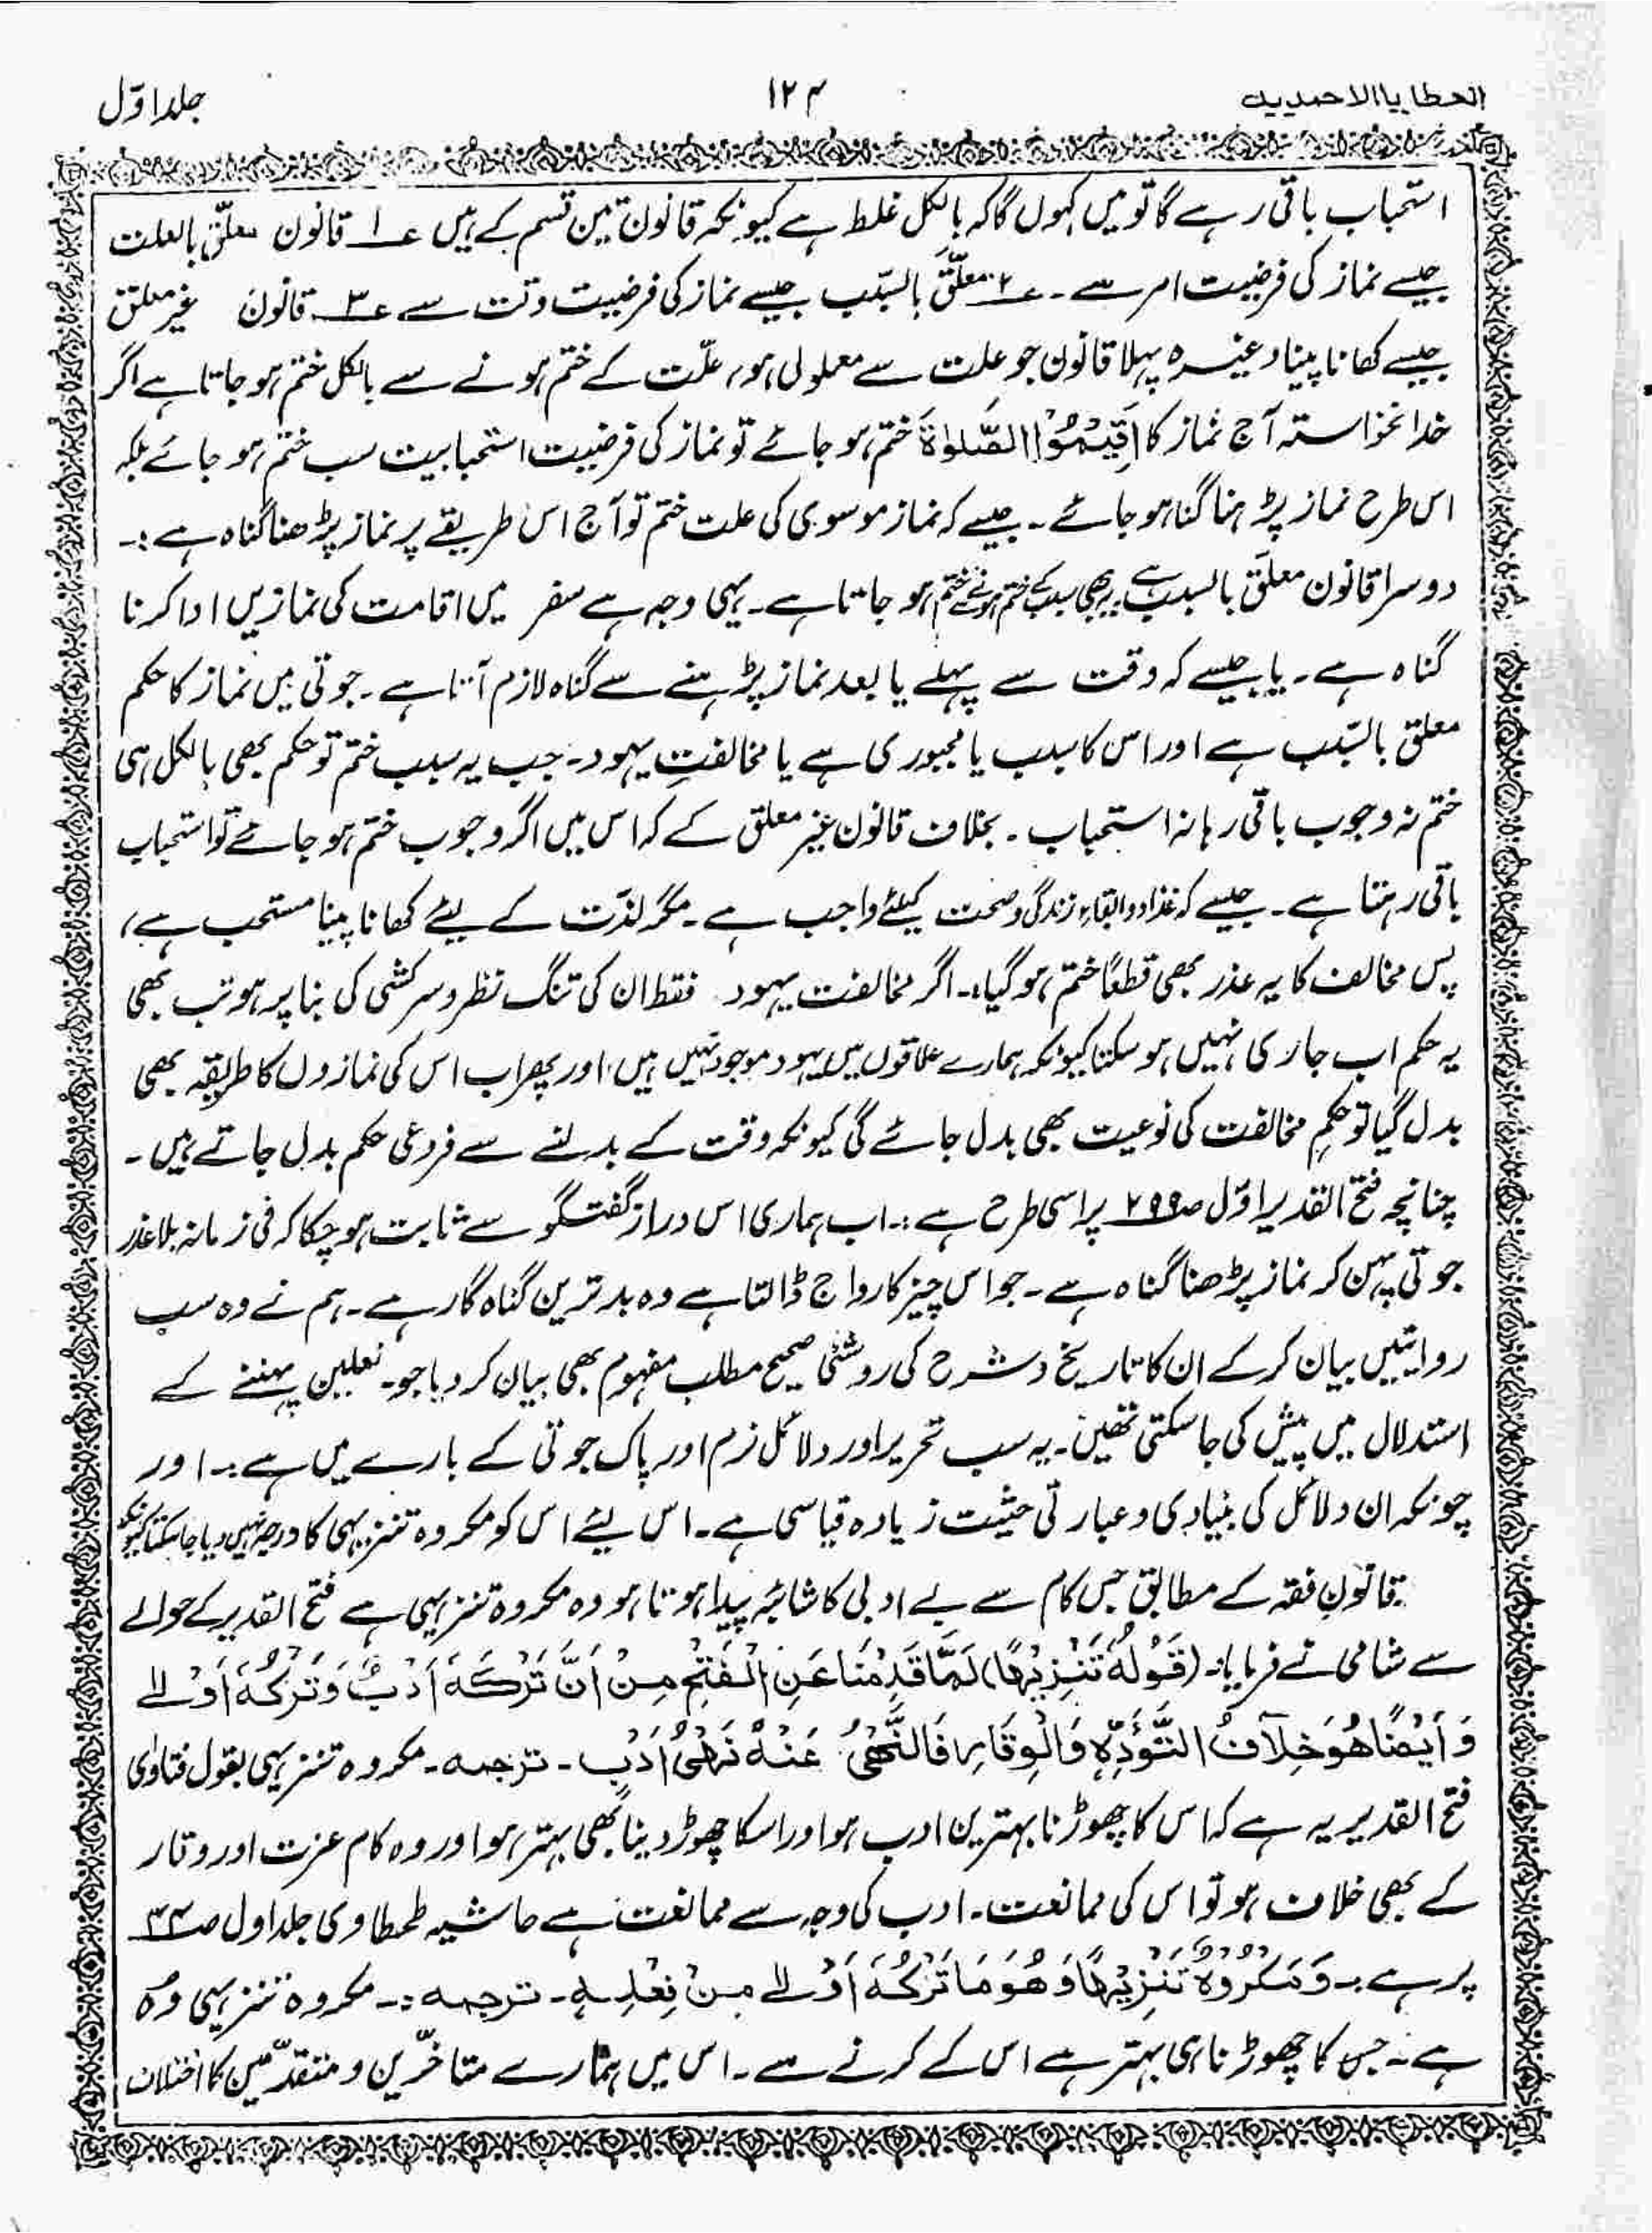 العطایا الاحمدیہ
۱۲۴
جلد اوّل
استحباب باقی رہے گا تو میں کہوں گا کہ بالکل غلط ہے کیونکہ قانون تین قسم کے ہیں ۱؎ قانون معلّق بالعلت
جیسے نماز کی فرضیت امر سے ۔ ۲؎ معلّق بالسّبب جیسے نماز کی فرضیت وقت سے ۳؎ قانون غیر معلق
جیسے کھانا پینا وغیرہ پہلا قانون جو علت سے معلول ہو، علّت کے ختم ہونے سے بالکل ختم ہو جاتا ہے اگر
خدانخواستہ آج نماز کا اَقِیْمُوْا الصَّلوٰةَ ختم ہو جائے تو نماز کی فرضیت استحبابیت سب ختم ہو جائے بلکہ
اس طرح نماز پڑہنا گناہ ہو جائے ۔ جیسے کہ نماز موسوی کی علت ختم تو آج اس طریقے پر نماز پڑھنا گناہ ہے :۔
دوسرا قانون معلّق بالسبب ہے یہ بھی سبب کے ختم ہونے سے ختم ہو جاتا ہے ۔ یہی وجہ ہے سفر میں اقامت کی نمازیں ادا کرنا
گناہ ہے ۔ یا جیسے کہ وقت سے پہلے یا بعد نماز پڑہنے سے گناہ لازم آتا ہے ۔ جوتی میں نماز کا حکم
معلق بالسّبب ہے اور اس کا سبب یا مجبوری ہے یا مخالفتِ یہود ۔ جب یہ سبب ختم تو حکم بھی بالکل ہی
ختم نہ وجوب باقی رہا نہ استحباب ۔ بخلاف قانون غیر معلق کے کہ اس میں اگر وجوب ختم ہو جائے تو استحباب
باقی رہتا ہے ۔ جیسے کہ غذا و دوا بقاءِ زندگی و صحت کیلئے واجب ہے ۔ مگر لذّت کے لیئے کھانا پینا مستحب ہے ،
پس مخالف کا یہ عذر بھی قطعًا ختم ہو گیا ۔ اگر مخالفت یہود فقط ان کی تنگ نظر و سرکشی کی بنا پر ہو تب بھی
یہ حکم اب جاری نہیں ہو سکتا کیونکہ ہمارے علاقوں میں یہود موجود نہیں ہیں ، اور پھر اب اس کی نمازوں کا طریقہ بھی
بدل گیا تو حکمِ مخالفت کی نوعیت بھی بدل جائے گی کیونکہ وقت کے بدلنے سے فروعی حکم بدل جاتے ہیں ۔
چنانچہ فتح القدیر اوّل صـ۲۹۹ پر اسی طرح ہے :۔ اب ہماری اس دراز گفتگو سے ثابت ہو چکا کہ فی زمانہ بلا عذر
جوتی پہن کر نماز پڑھنا گناہ ہے ۔ جو اس چیز کا رواج ڈالتا ہے وہ بدترین گناہ گار ہے ۔ ہم نے وہ سب
روایتیں بیان کر کے ان کا تاریخ و شرح کی روشنی صحیح مطلب مفہوم بھی بیان کر دیا جو ۔ نعلین پہننے کے
استدلال میں پیش کی جا سکتی تھیں ۔ یہ سب تحریر اور دلائل نرم اور پاک جوتی کے بارے میں ہے :۔ اور
چونکہ ان دلائل کی بنیادی و عبارتی حیثیت زیادہ قیاسی ہے ۔ اس لیئے اس کو مکروہ تنزیہی کا درجہ نہیں دیا جا سکتا کیونکہ
قانونِ فقہ کے مطابق جس کام سے بے ادبی کا شائبہ پیدا ہوتا ہو وہ مکروہ تنزیہی ہے فتح القدیر کے حوالے
سے شامی نے فرمایا ۔ (قَوْلُهٗ تَنْزِیْهًا) لَمَّا قَدِمْنَا عَنِ الْفَتْحِ مِنْ اَنَّ تَرْكَهٗ اَدَبٌ وَتَرْكُهٗ اَوْلٰے
وَ اَیْضًا هُوَ خِلَافُ التَّوَدَّةِ وَالْوِقَارِ فَالنَّهْیُ عَنْهُ نَهْیُ اَدَبٍ ۔ ترجمہ ۔ مکروہ تنزیہی بقول فتاوٰی
فتح القدیر یہ ہے کہ اس کا چھوڑنا بہترین ادب ہو اور اسکا چھوڑ دینا بھی بہتر ہو اور وہ کام عزت اور وقار
کے بھی خلاف ہو تو اس کی ممانعت ۔ ادب کی وجہ سے ممانعت ہے حاشیہ طحطاوی جلد اول صـ۳۴
پر ہے :۔ وَمَكْرُوْهٌ تَنْزِیْهًا وَهُوَ مَا تَرْكُهٗ اَوْلٰے مِنْ فِعْلِهٖ ۔ ترجمہ :۔ مکروہ تنزیہی وہ
ہے ۔ جس کا چھوڑنا ہی بہتر ہے اس کے کرنے سے ۔ اس میں ہمارے متاخّرین و متقدّمین کا اختلاف